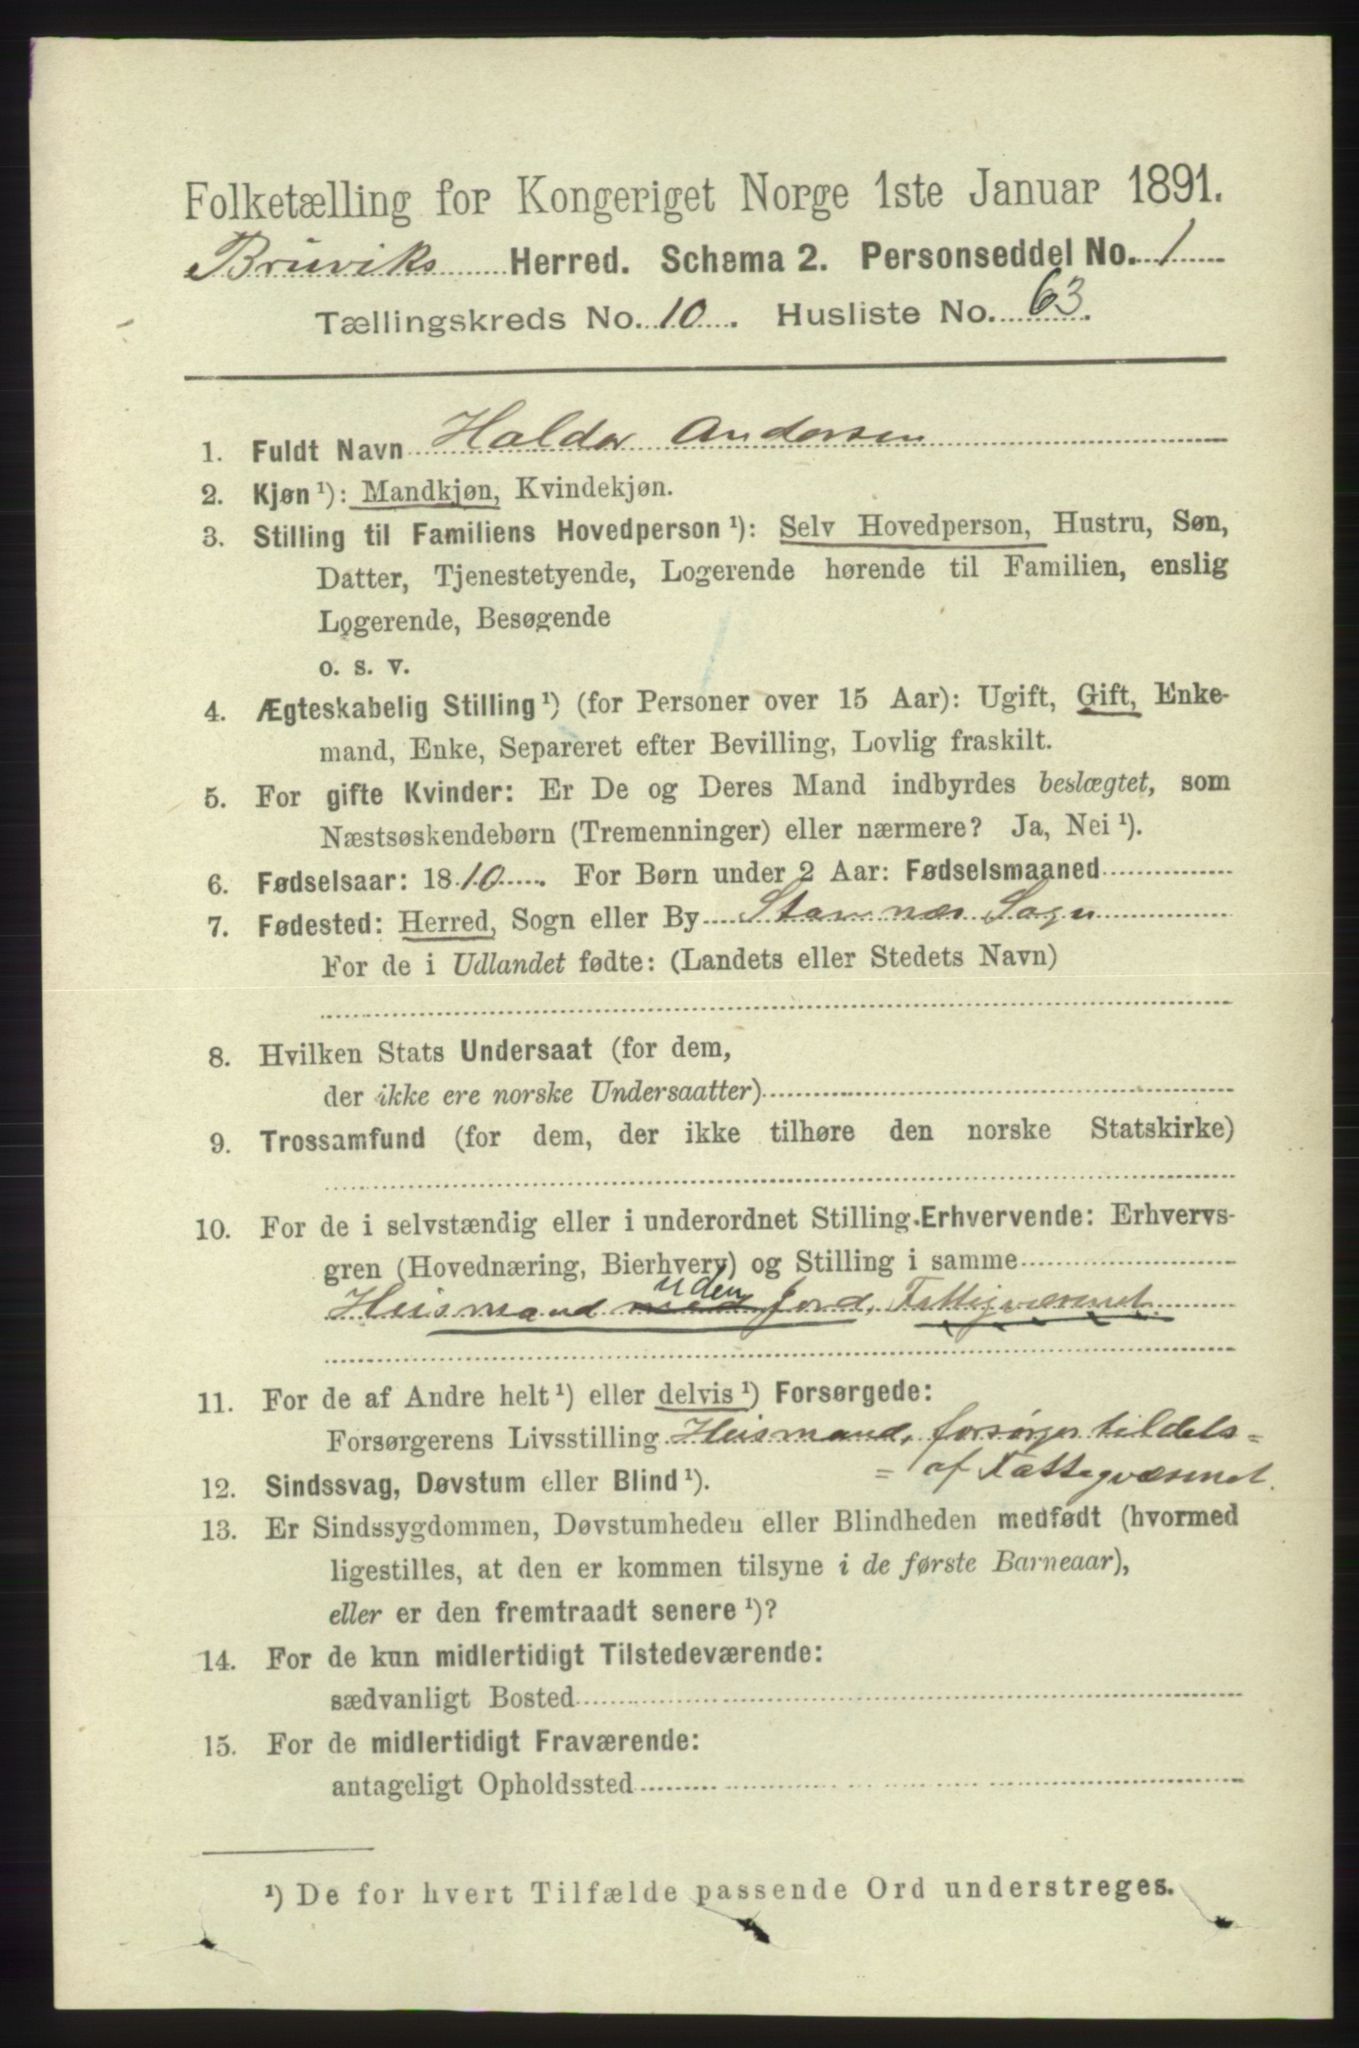 Folketælling for Kongeriget Norge 1ste Januar 1891.
Bruviks Herred. Schema 2. Personseddel No. 1
Tællingskreds No. 10. Husliste No. 63.
1. Fuldt Navn Haldor Andersen
2. Kjøn ¹): Mandkjøn, Kvindekjøn.
3. Stilling til Familiens Hovedperson ¹): Selv Hovedperson, Hustru, Søn,
Datter, Tjenestetyende, Logerende hørende til Familien, enslig
Logerende, Besøgende
o. s. v.
4. Ægteskabelig Stilling ¹) (for Personer over 15 Aar): Ugift, Gift, Enke-
mand, Enke, Separeret efter Bevilling, Lovlig fraskilt.
5. For gifte Kvinder: Er De og Deres Mand indbyrdes beslægtet, som
Næstsøskendebørn (Tremenninger) eller nærmere? Ja, Nei ¹).
6. Fødselsaar: 1810. For Børn under 2 Aar: Fødselsmaaned
7. Fødested: Herred, Sogn eller By Stamnæs Sogn
For de i Udlandet fødte: (Landets eller Stedets Navn)
8. Hvilken Stats Undersaat (for dem,
der ikke ere norske Undersaatter)
9. Trossamfund (for dem, der ikke tilhøre den norske Statskirke)
10. For de i selvstændig eller i underordnet Stilling Erhvervende: Erhvervs-
gren (Hovednæring, Bierhverv) og Stilling i samme
uden
Husmand med Jord, Fattigvæsenet.
11. For de af Andre helt ¹) eller delvis ¹) Forsørgede:
Forsørgerens Livsstilling Husmand, forsørges tildels=
12. Sindssvag, Døvstum eller Blind ¹). = af Fattigvæsenet.
13. Er Sindssygdommen, Døvstumheden eller Blindheden medfødt (hvormed
ligestilles, at den er kommen tilsyne i de første Barneaar),
eller er den fremtraadt senere ¹)?
14. For de kun midlertidigt Tilstedeværende:
sædvanligt Bosted
15. For de midlertidigt Fraværende:
antageligt Opholdssted
¹) De for hvert Tilfælde passende Ord understreges.